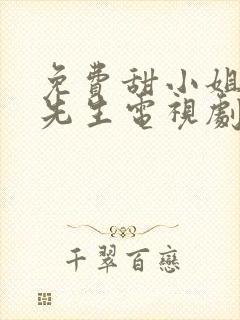 免費甜小姐
先生電視劇
千翠百戀